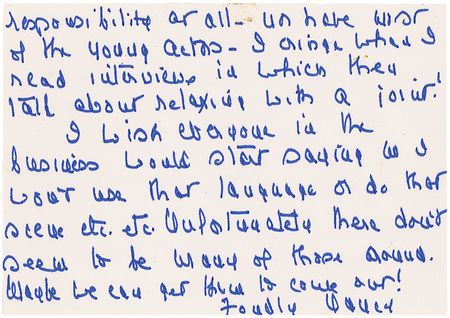 responsibility at all - nor have most
of the young actors - I cringe when I
read interviews in which they
talk about relaxing with a joint!
I wish everyone in the
business would start saying no I
won't use that language or do that
scene etc. etc. Unfortunately there don't
seem to be many of those around.
Maybe we can get them to come out!
Fondly